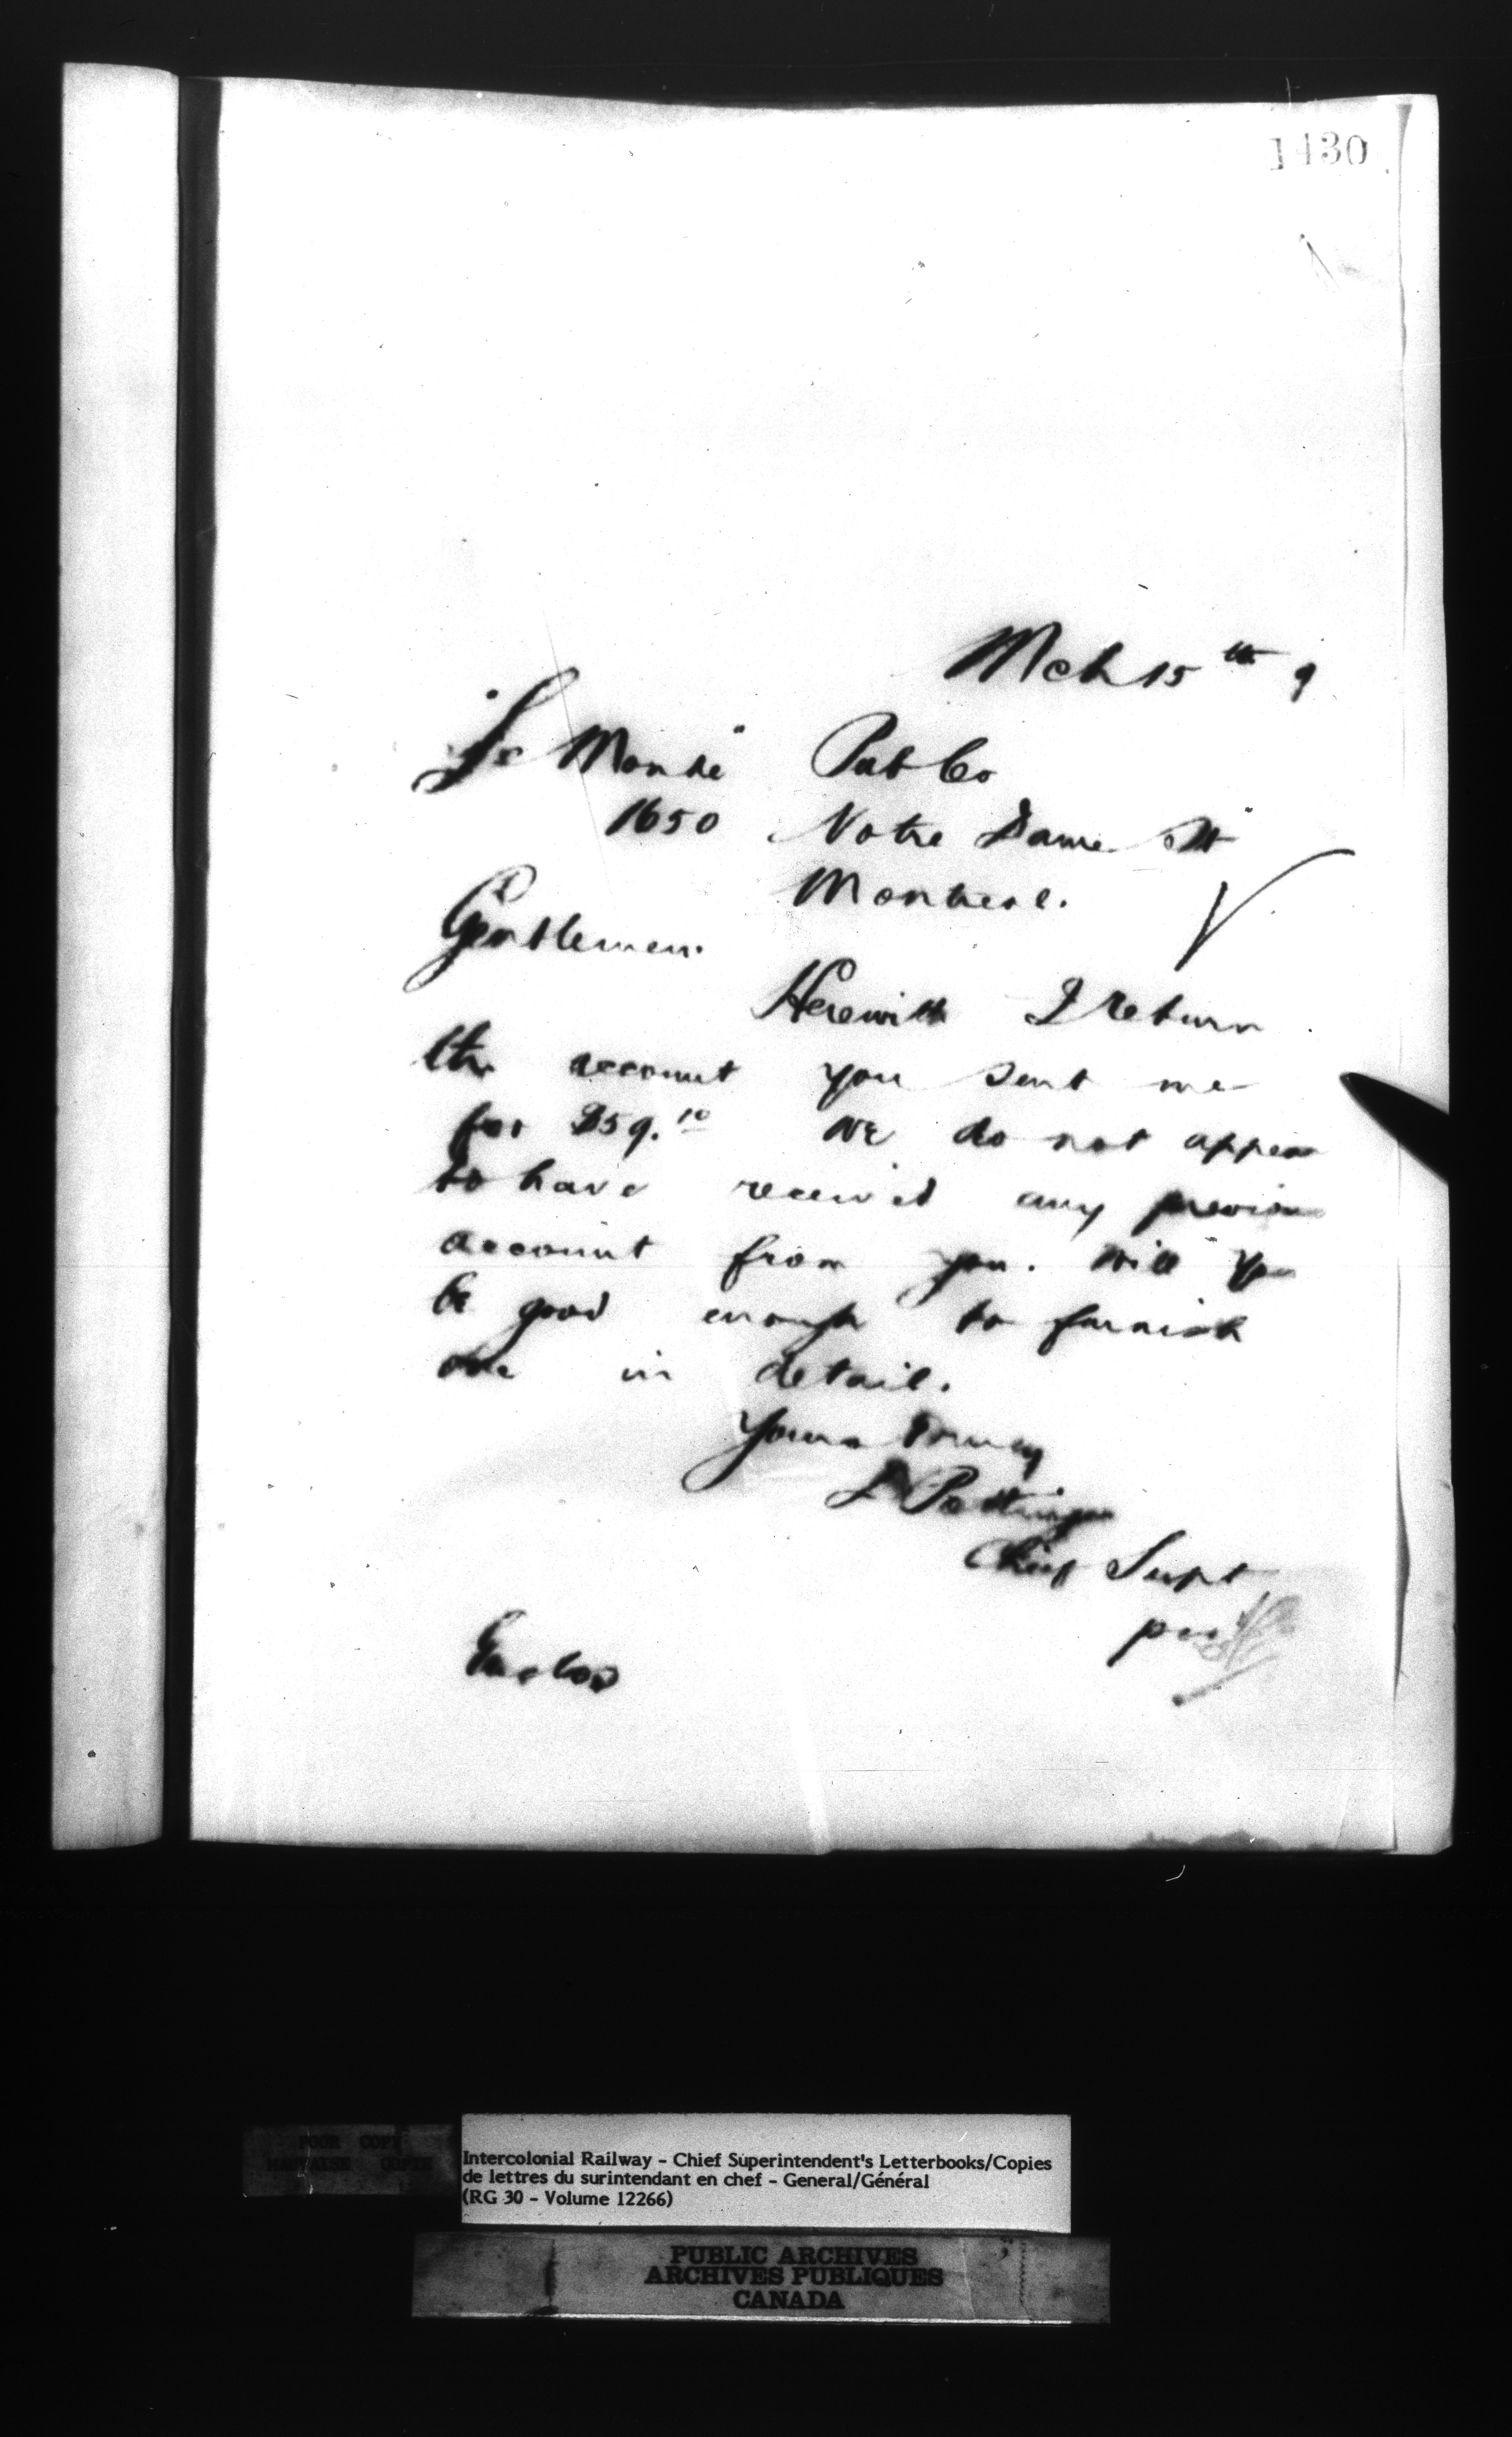 1430
Mch 15th 9
"Le Monde" Pub Co
1650 Notre Dame St
Montreal.
Gentlemen.
Herewith I return
the account you sent me
for $59.10 We do not appear
to have received any previous
account from you. Will you
be good enough to furnish
one in detail.
Yours truly
D Pottinger
Chief Supt
per
Enclos
POOR COPY
MAUVAISE COPIE
Intercolonial Railway - Chief Superintendent's Letterbooks/Copies
de lettres du surintendant en chef - General/Général
(RG 30 - Volume 12266)
PUBLIC ARCHIVES
ARCHIVES PUBLIQUES
CANADA